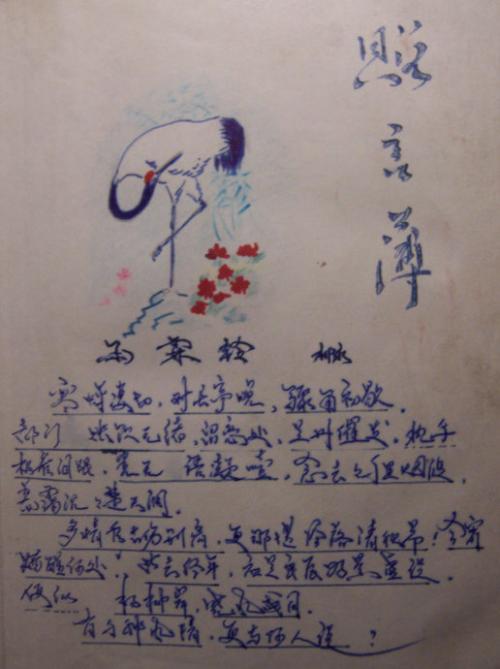 赠言薄
雨霖铃 柳永
寒蝉凄切,对长亭晚,骤雨初歇。
都门 帐饮无绪,留恋处,兰舟催发,执手
相看泪眼,竟无 语凝噎,念去去千里烟波,
暮霭沉沉楚天阔。
多情自古伤别离,更那堪冷落清秋节!今宵
酒醒何处,此去经年,应是良辰好景虚设。
便纵 杨柳岸,晓风残月。
有千种风情,更与何人说?